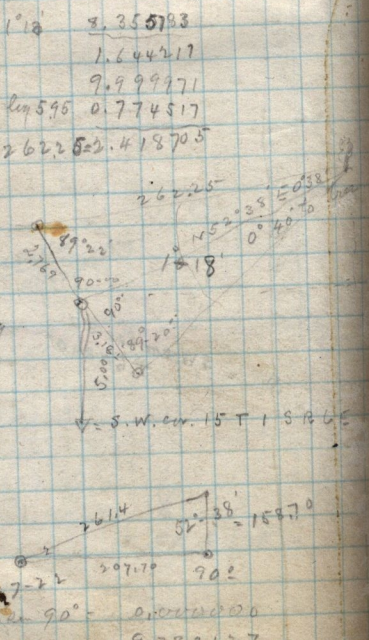 1° 18' 8.355783
1.644217
9.999971
log 595 0.774517
262.25=2.418705
262.25
N 52° 38' E 0° 38'
0° 40'
1° 18'
89° 22'
2.769
90°
90°
89° 20'
5.00
S. W. Cor. 15 T 1 S R 6 E
261.4
52° 38' = 158.70
207.70
90°
90° = 0.000000